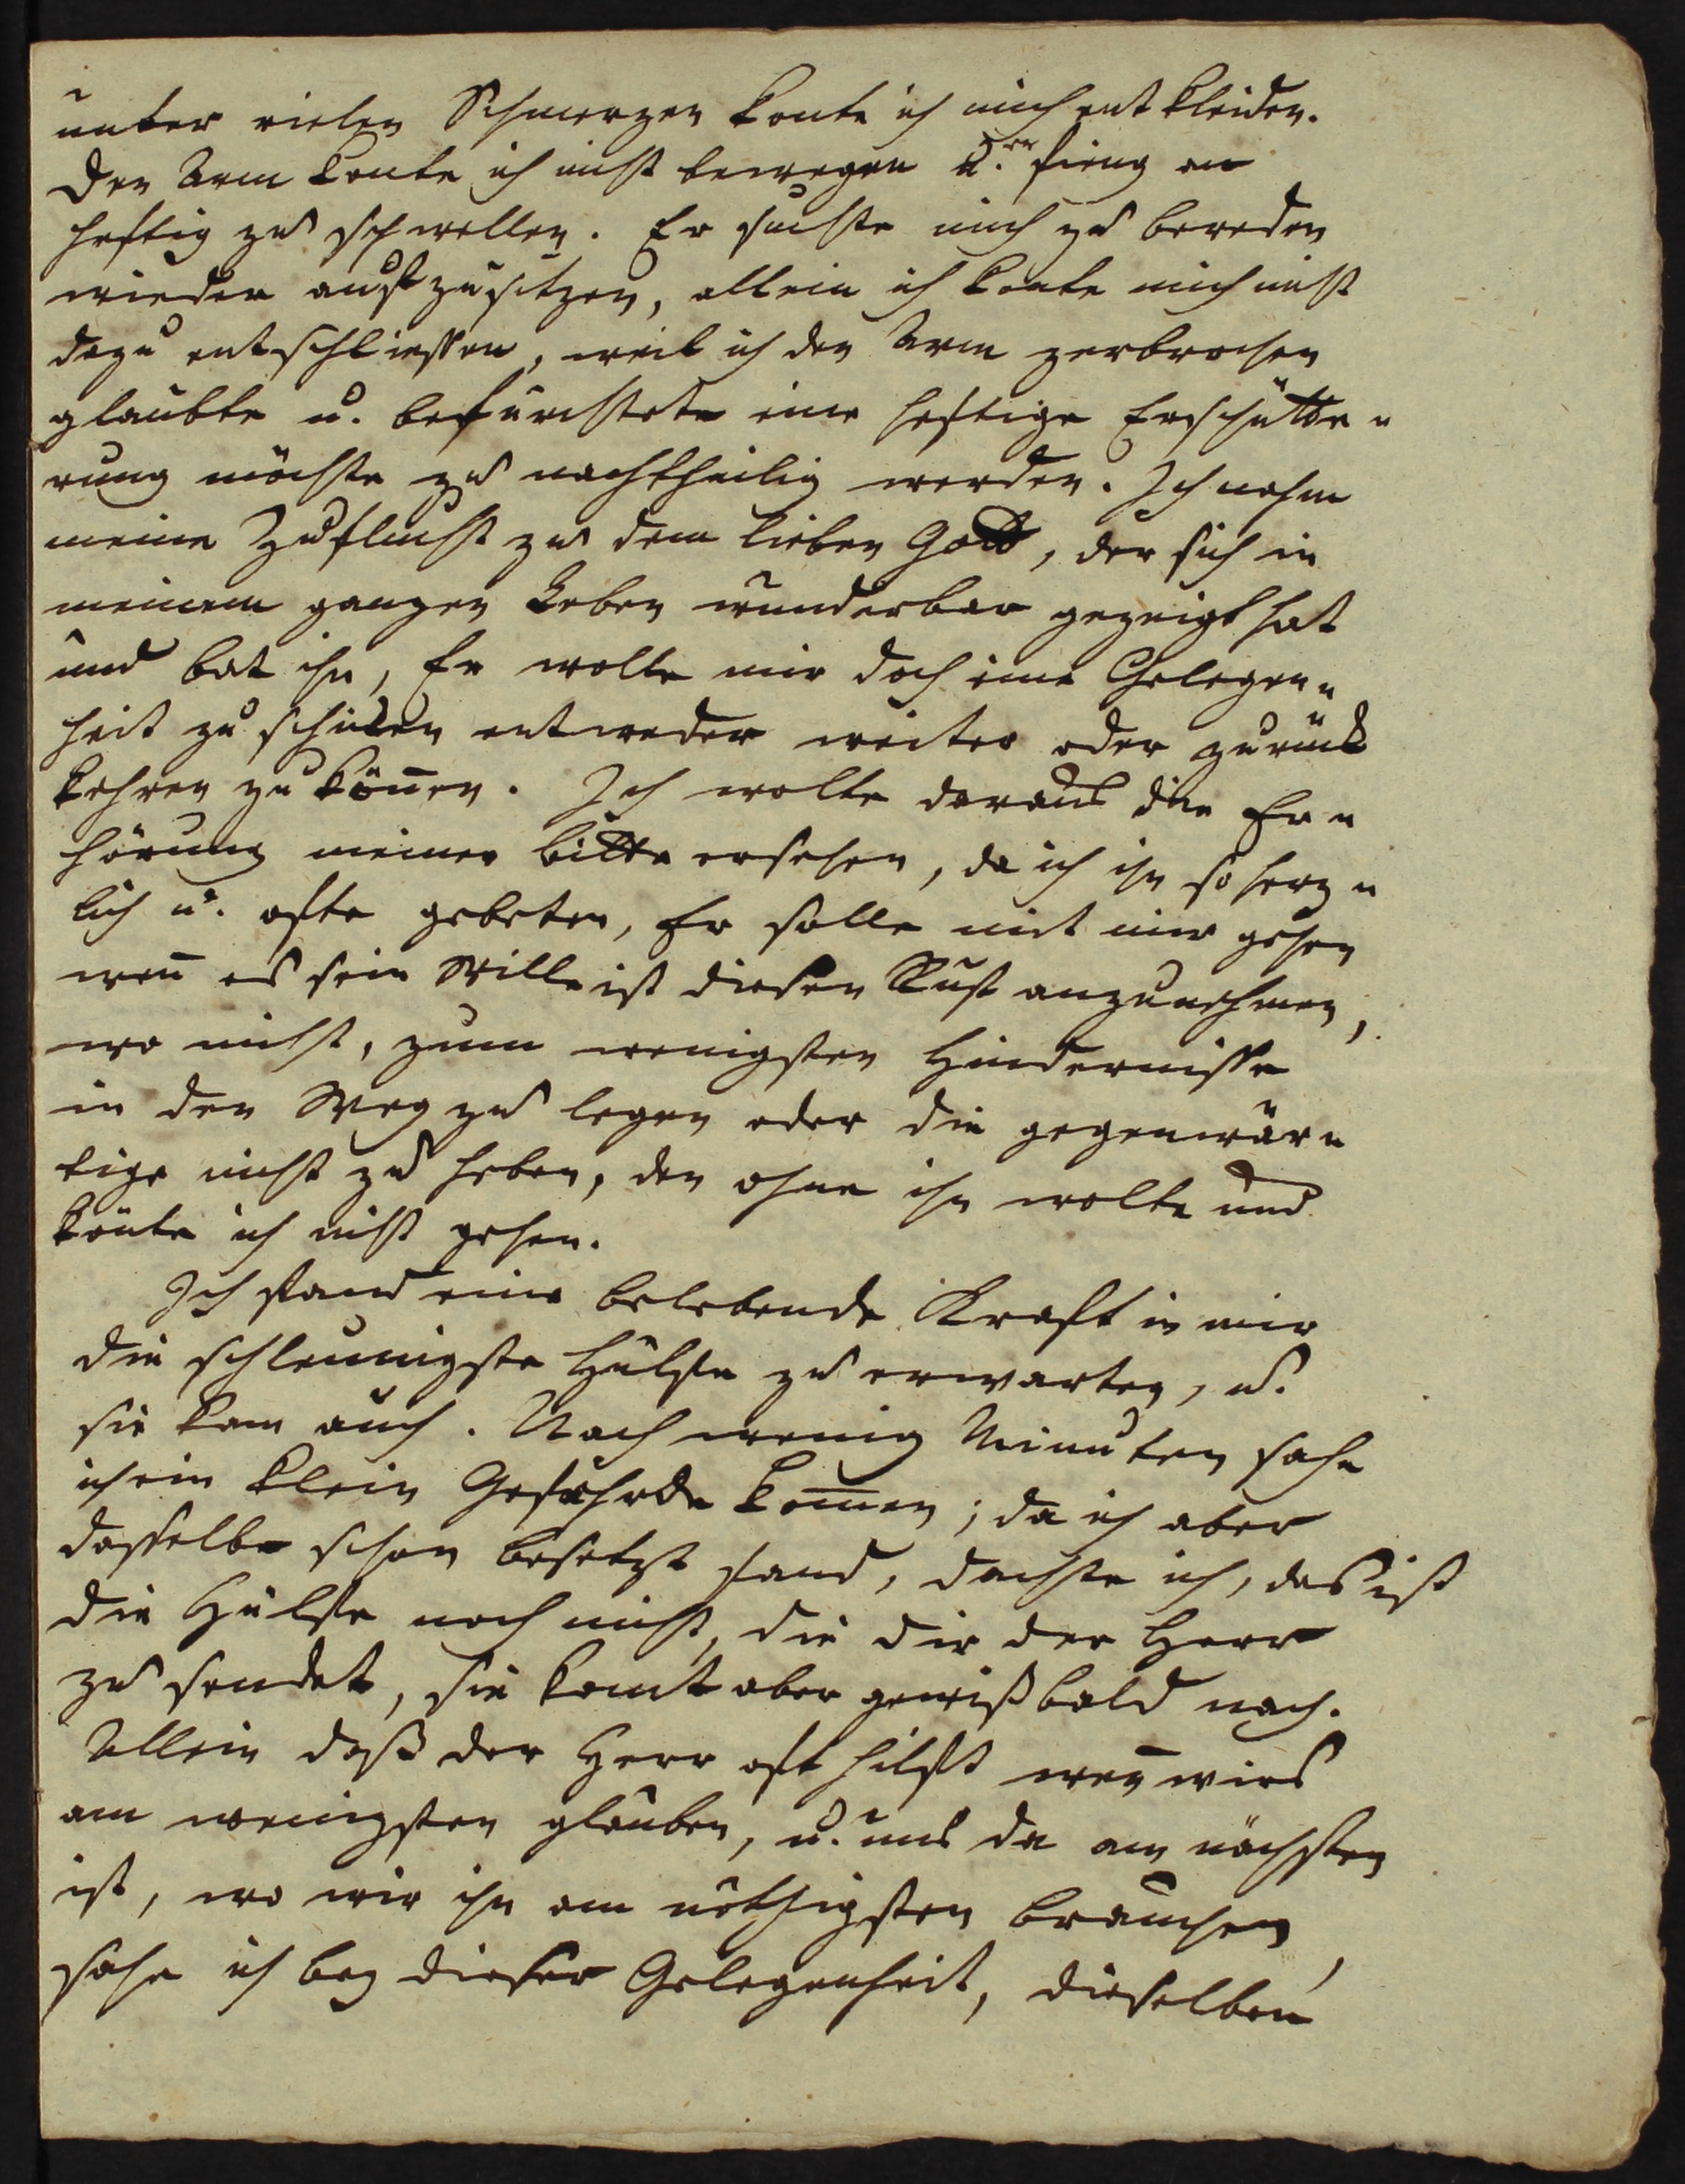 unter vielen Schmerzen konte ich mich entkleiden.
Den Arm konte ich nicht bewegen u. er fieng an
heftig zu schwellen. Er suchte mich zu bereden
wieder aufzusitzen, allein ich konte mich nicht
dazu entschliessen, weil ich den Arm zerbrochen
glaubte u. befürchtete eine heftige Erschütte-
rung möchte zu nachtheilig werden. Ich nahm
meine Zuflucht zu dem lieben Gott, der sich in
meinem ganzen Leben wunderbar gezeigt hat
und bat ihn, Er wolle mir doch eine Gelegen-
heit zu schicken entweder weiter oder zurück
kehren zu kön̄en. Ich wolte daraus die Er-
hörung meiner bitte ersehen, da ich ihn so herz-
lich u. ofte gebeten, Er solle mit mir gehen
wen̄ es sein Wille ist diesen Ruf anzunehmen,
wo nicht, zum wenigsten Hindernisse
in den Weg zu legen oder die gegenwär-
tige nicht zu heben, den ohne ihn wolte und
könte ich nicht gehen.
Ich fand eine belebende Kraft in mir
die schleunigste Hülfe zu erwarten, u.
sie kam auch. Nach wenig Minuten sahe
ich ein klein Gefährde kom̄en; da ich aber
dasselbe schon besetzt fand, dachte ich, das ist
die Hülfe noch nicht, die dir der Herr
zu sendet, sie komt aber gewiß bald nach.
Allein daß der Herr oft hilft wen̄ wirs
am wenigsten glauben, u. uns da am nächsten
ist, wo wir ihn am nöthigsten brauchen,
sahe ich bey dieser Gelegenheit, dieselben